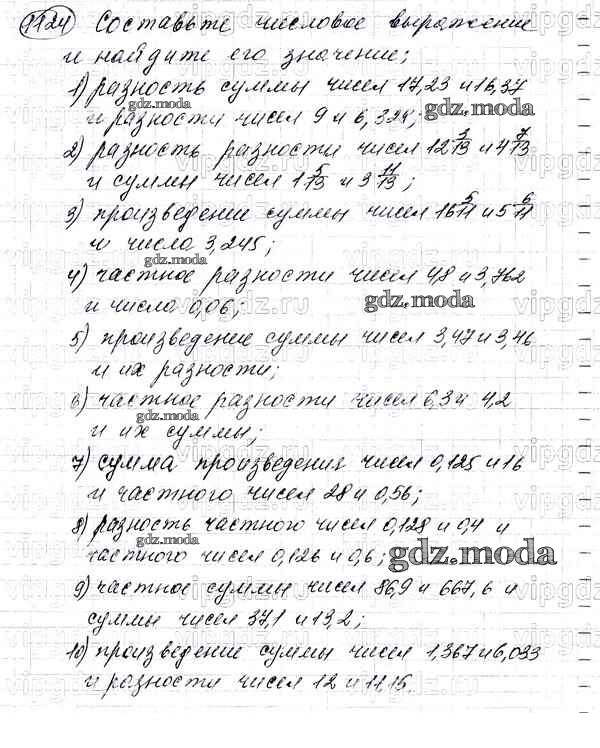 1124 Составьте числовое выражение
и найдите его значение;
1) разность суммы чисел 17,23 и 16,37
gdz.moda
gdz.moda
и разности чисел 9 и 6,328;
2) разность разности чисел 12 3/13 и 4 7/13
и суммы чисел 1 5/13 и 3 11/13;
3) произведение суммы чисел 16 5/11 и 5 6/11
и числа 3,245;
gdz.moda
4) частное разности чисел 48 и 3,762
и числа 0,06;
gdz.moda
5) произведение суммы чисел 3,47 и 3,46
и их разности;
6) частное разности чисел 6,3 и 4,2
gdz.moda
и их суммы;
7) сумма произведения чисел 0,125 и 16
и частного чисел 28 и 0,56;
8) разность частного чисел 0,128 и 0,4 и
gdz.moda
частного чисел 0,126 и 0,6;
gdz.moda
9) частное суммы чисел 86,9 и 667,6 и
суммы чисел 37,1 и 13,2;
10) произведение суммы чисел 1,367 и 6,033
и разности чисел 12 и 11,15.